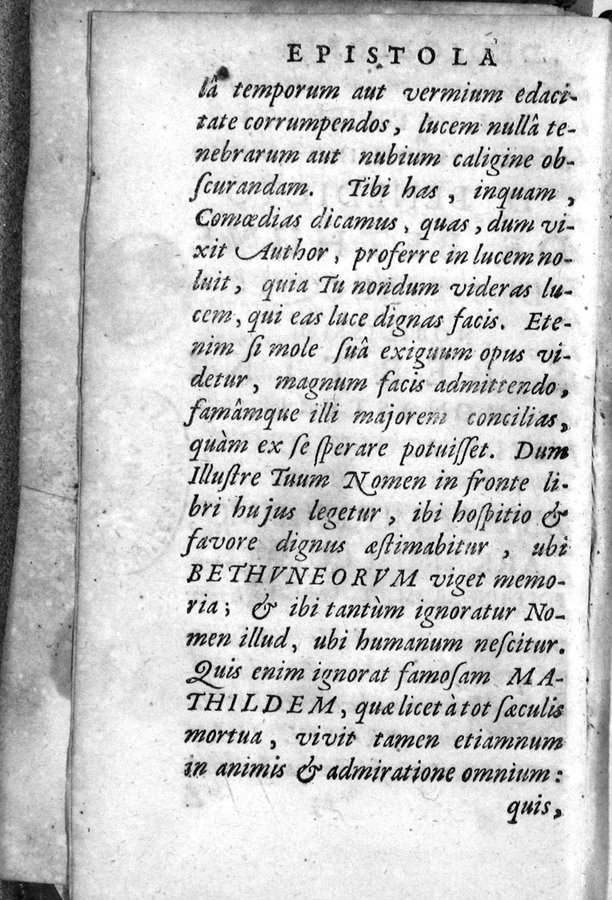 EPISTOLA
lâ temporum aut vermium edaci-
tate corrumpendos, lucem nullâ te-
nebrarum aut nubium caligine ob-
ſcurandam. Tibi has, inquam,
Comœdias dicamus, quas, dum vi-
xit Author, proferre in lucem no-
luit, quia Tu nondum videras lu-
cem, qui eas luce dignas facis. Ete-
nim ſi mole ſuâ exiguum opus vi-
detur, magnum facis admittendo,
famâmque illi majorem concilias,
quàm ex ſe ſperare potuiſſet. Dum
Illuſtre Tuum Nomen in fronte li-
bri hujus legetur, ibi hoſpitio &
favore dignus æſtimabitur, ubi
BETHVNEORVM viget memo-
ria; & ibi tantùm ignoratur No-
men illud, ubi humanum neſcitur.
Quis enim ignorat famoſam MA-
THILDEM, quæ licet à tot ſæculis
mortua, vivit tamen etiamnum
in animis & admiratione omnium:
quis,